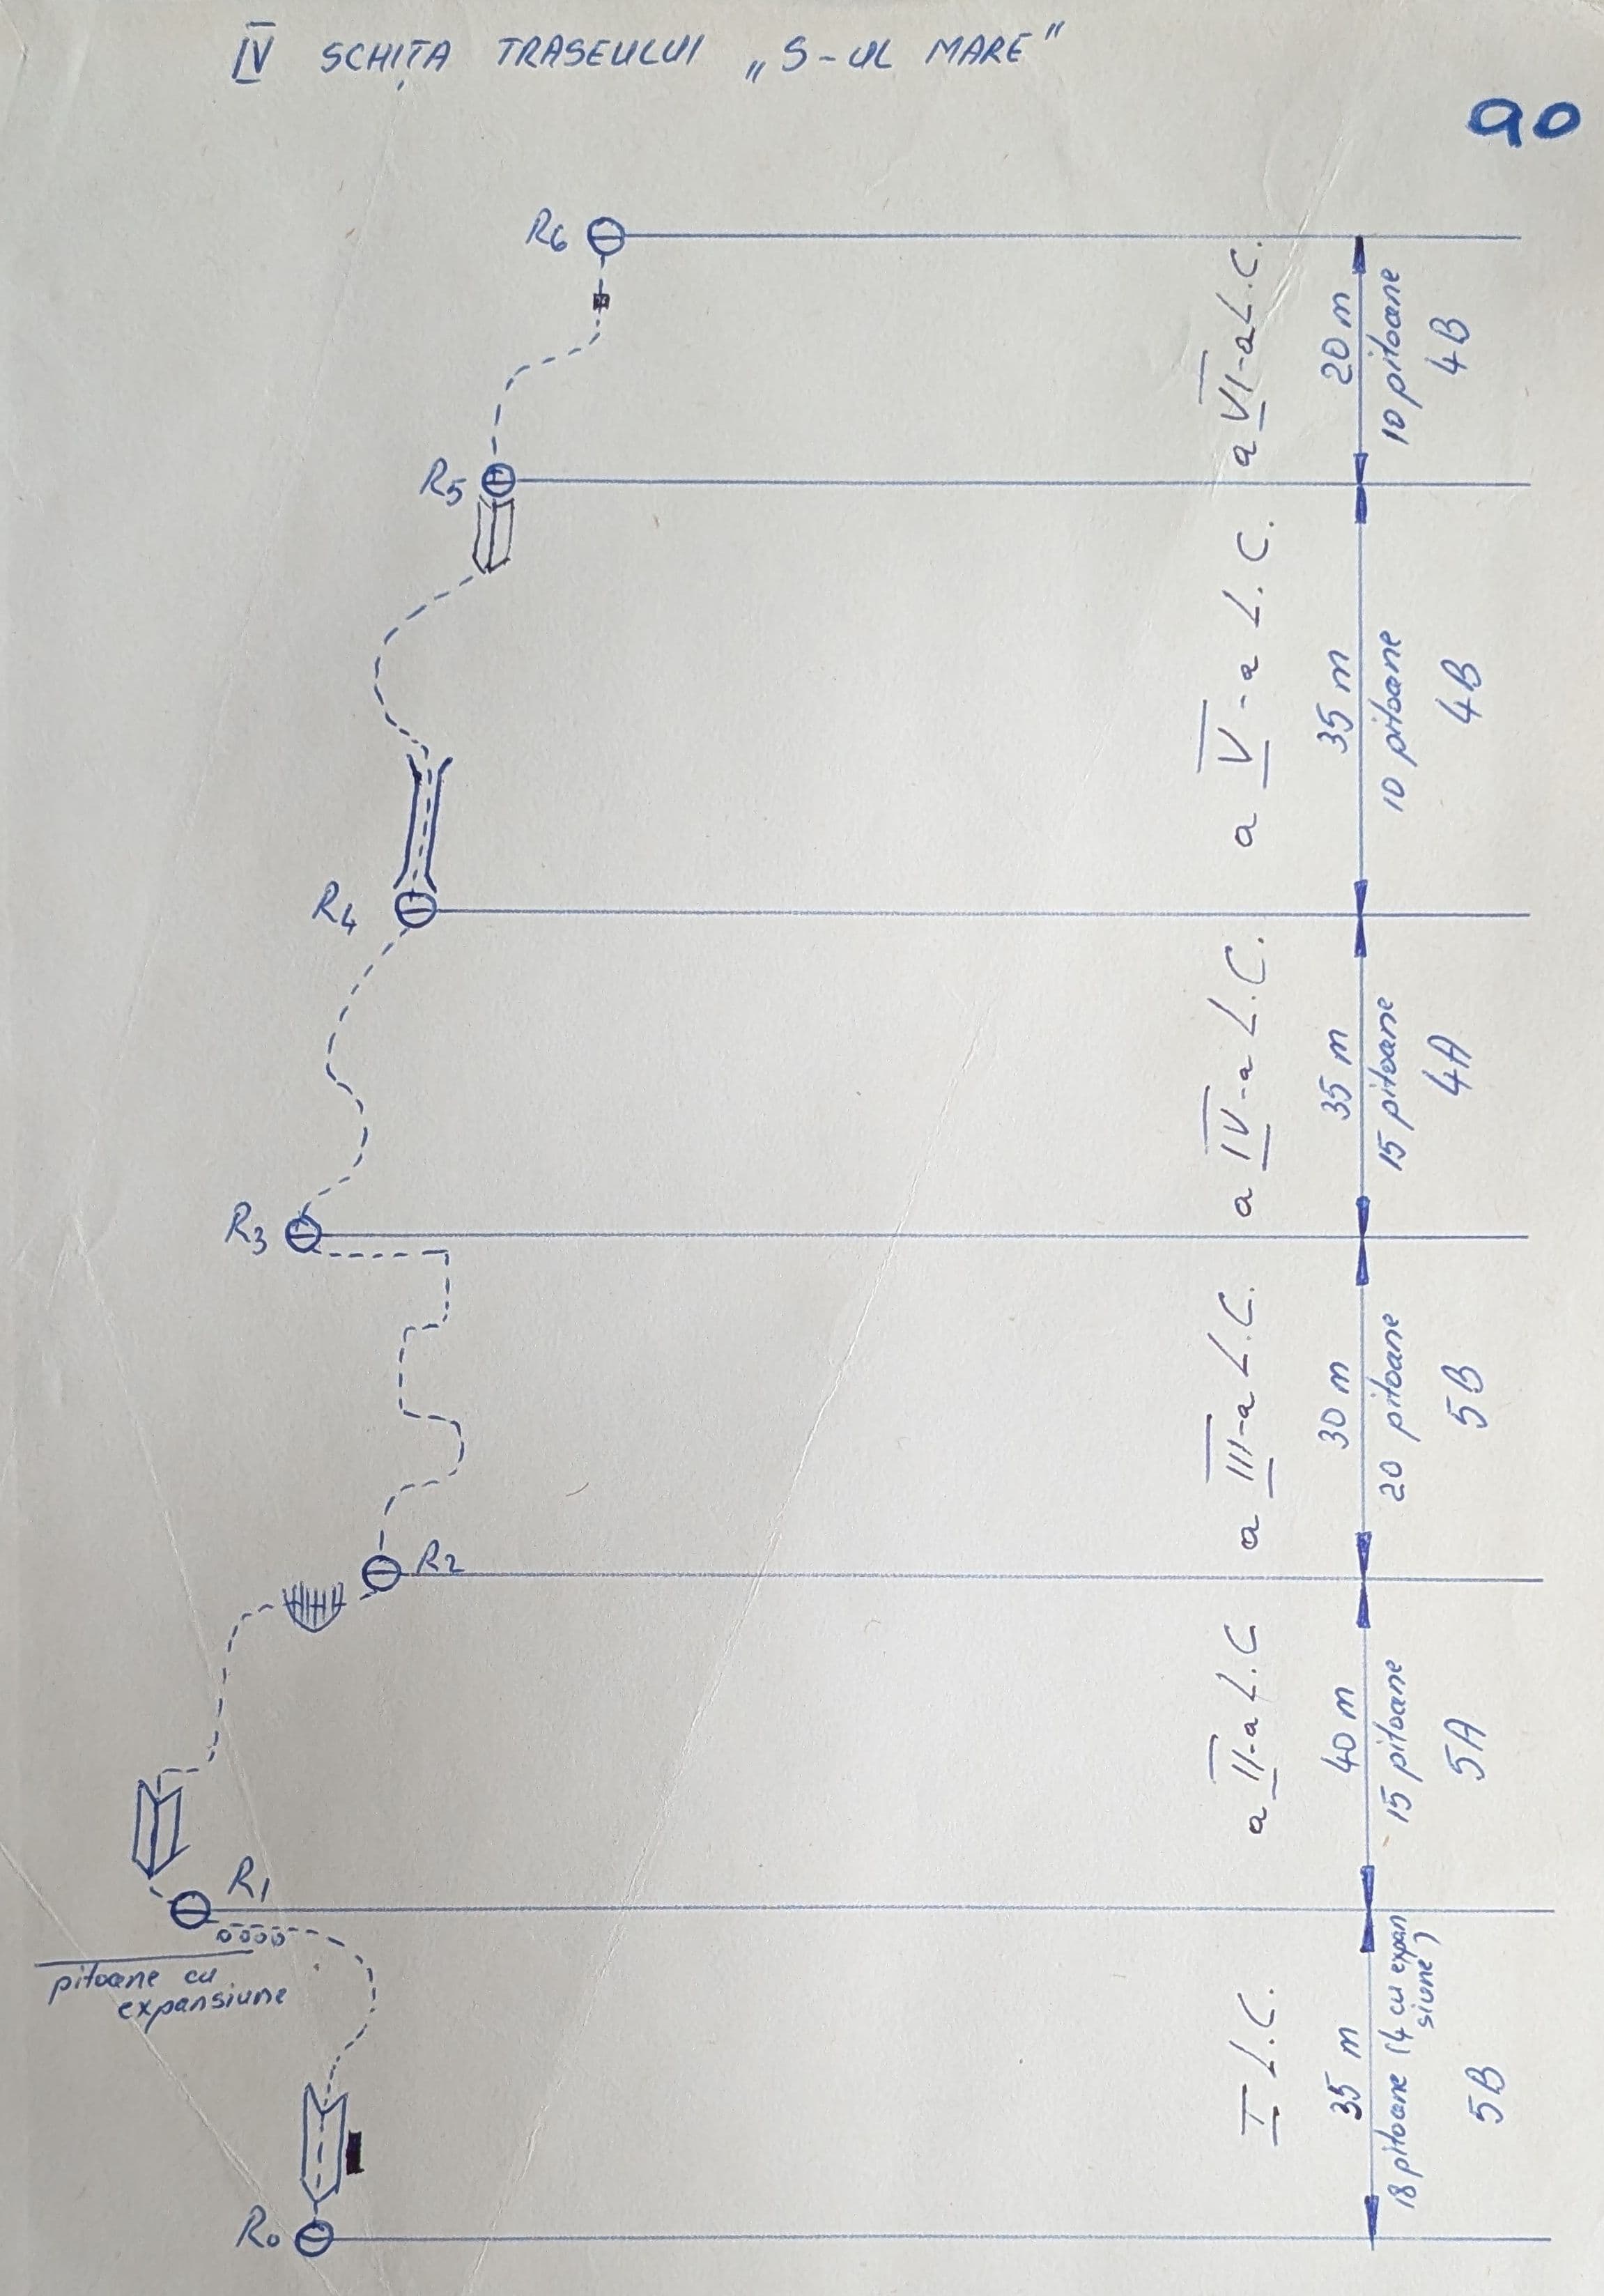 IV SCHIȚA TRASEULUI „S-UL MARE”
90
R6
a VI-a L.C.
20 m
10 pitoane
4B
R5
a V-a L.C.
35 m
10 pitoane
4B
R4
a IV-a L.C.
35 m
15 pitoane
4A
R3
a III-a L.C.
30 m
20 pitoane
5B
R2
a II-a L.C
40 m
15 pitoane
5A
R1
pitoane cu
expansiune
I L.C.
35 m
18 pitoane (4 cu expan
siune)
5B
R0